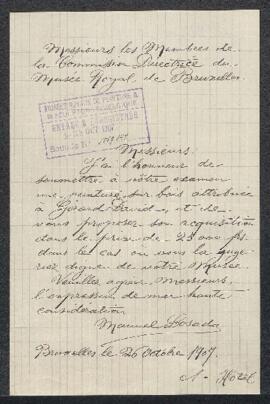 Messieurs les Membres de
la Commission Directrice du
Musée Royal de Bruxelles.
OCT 190
Messieurs.
J'ai l'honneur de
soumettre à votre examen
une peinture sur bois attribuée
à Gérard David, et de
vous proposer son acquisition
dans le prix de 25 000 frs.
dans le cas où vous la jugeriez
digne de votre Musée.
Veuillez agréer, Messieurs,
l'expression de ma haute
considération
Manuel Losada
Bruxelles le 26 Octobre 1907.